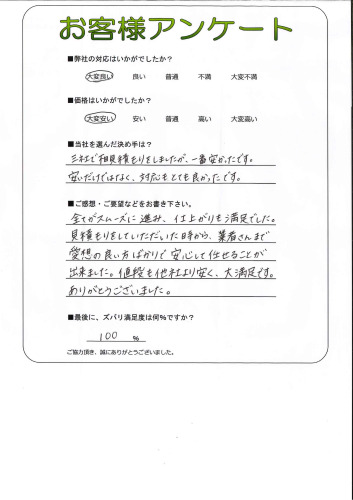 お客様アンケート
■弊社の対応はいかがでしたか?
大変良い 良い 普通 不満 大変不満
■価格はいかがでしたか?
大変安い 安い 普通 高い 大変高い
■当社を選んだ決め手は?
三社で相見積もりをしましたが、一番安かったです。
安いだけではなく、対応もとても良かったです。
■ご感想・ご要望などをお書き下さい。
全てがスムーズに進み、仕上がりも満足でした。
見積もりをしていただいた時から、業者さんまで
愛想の良い方ばかりで安心して任せることが
出来ました。値段も他社より安く、大満足です。
ありがとうございました。
■最後に、ズバリ満足度は何%ですか?
100 %
ご協力頂き、誠にありがとうございました。